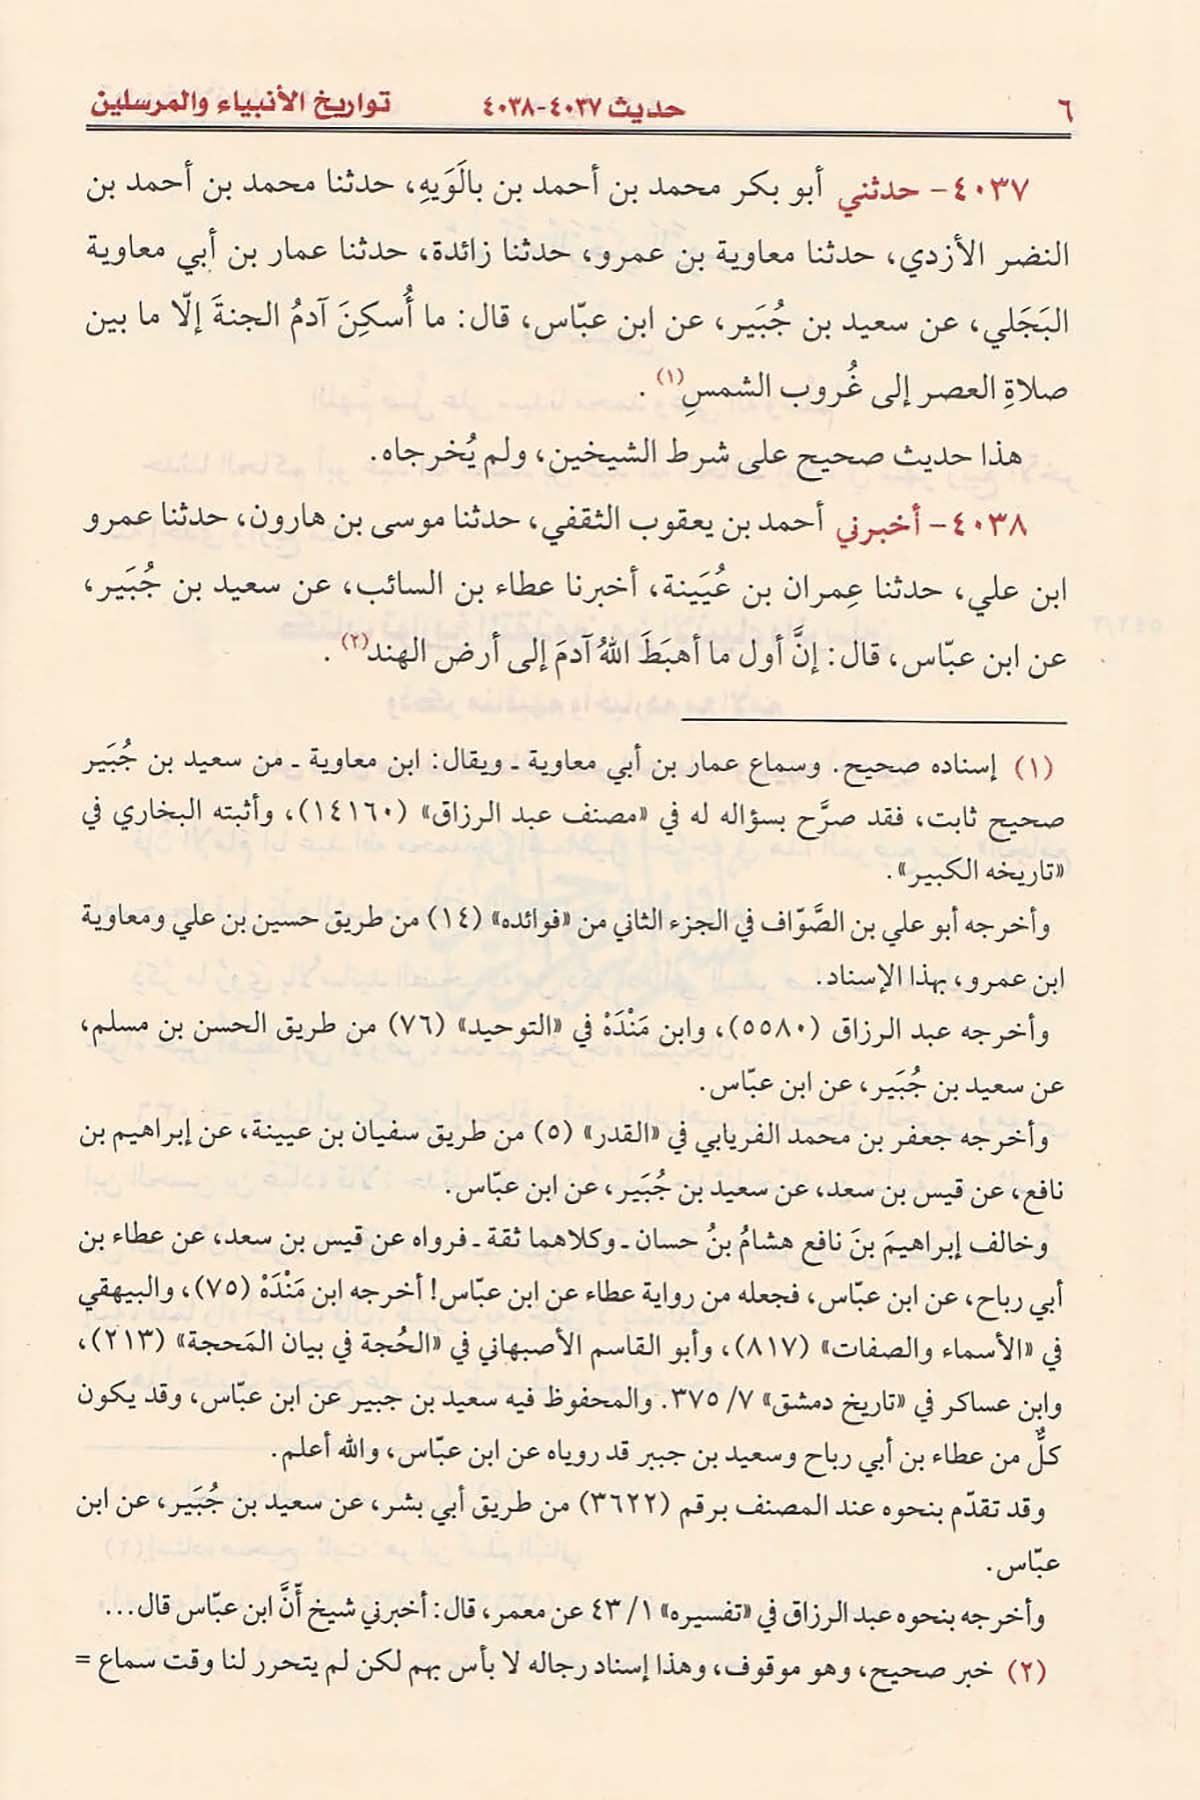 ٦ حديث ٤٠٣٧-٤٠٣٨ تواريخ الأنبياء والمرسلين
٤٠٣٧- حدثني أبو بكر محمد بن أحمد بن بالَوَيهِ، حدثنا محمد بن أحمد بن
النضر الأزدي، حدثنا معاوية بن عمرو، حدثنا زائدة، حدثنا عمار بن أبي معاوية
البَجَلي، عن سعيد بن جُبَير، عن ابن عبّاس، قال: ما أُسكِنَ آدمُ الجنةَ إلّا ما بين
صلاةِ العصر إلى غُروب الشمسِ(١).
هذا حديث صحيح على شرط الشيخين، ولم يُخرجاه.
٤٠٣٨- أخبرني أحمد بن يعقوب الثقفي، حدثنا موسى بن هارون، حدثنا عمرو
ابن علي، حدثنا عِمران بن عُيَينة، أخبرنا عطاء بن السائب، عن سعيد بن جُبَير،
عن ابن عبّاس، قال: إنَّ أول ما أهبَطَ اللهُ آدمَ إلى أرض الهند(٢).
(١) إسناده صحيح. وسماع عمار بن أبي معاوية ـ ويقال: ابن معاوية ـ من سعيد بن جُبَير
صحيح ثابت، فقد صرَّح بسؤاله له في «مصنف عبد الرزاق» (١٤١٦٠)، وأثبته البخاري في
«تاريخه الكبير».
وأخرجه أبو علي بن الصَّوّاف في الجزء الثاني من «فوائده» (١٤) من طريق حسين بن علي ومعاوية
ابن عمرو، بهذا الإسناد.
وأخرجه عبد الرزاق (٥٥٨٠)، وابن مَنْدَهْ في «التوحيد» (٧٦) من طريق الحسن بن مسلم،
عن سعيد بن جُبَير، عن ابن عبّاس.
وأخرجه جعفر بن محمد الفريابي في «القدر» (٥) من طريق سفيان بن عيينة، عن إبراهيم بن
نافع، عن قيس بن سعد، عن سعيد بن جُبَير، عن ابن عبّاس.
وخالف إبراهيمَ بنَ نافع هشامُ بنُ حسان ـ وكلاهما ثقة ـ فرواه عن قيس بن سعد، عن عطاء بن
أبي رباح، عن ابن عبّاس، فجعله من رواية عطاء عن ابن عبّاس! أخرجه ابن مَنْدَهْ (٧٥)، والبيهقي
في «الأسماء والصفات» (٨١٧)، وأبو القاسم الأصبهاني في «الحُجة في بيان المَحجة» (٢١٣)،
وابن عساكر في «تاريخ دمشق» ٧/ ٣٧٥. والمحفوظ فيه سعيد بن جبير عن ابن عبّاس، وقد يكون
كلٌّ من عطاء بن أبي رباح وسعيد بن جبير قد روياه عن ابن عبّاس، والله أعلم.
وقد تقدّم بنحوه عند المصنف برقم (٣٦٢٢) من طريق أبي بشر، عن سعيد بن جُبَير، عن ابن
عبّاس.
وأخرجه بنحوه عبد الرزاق في «تفسيره» ١/ ٤٣ عن معمر، قال: أخبرني شيخ أنَّ ابن عبّاس قال...
(٢) خبر صحيح، وهو موقوف، وهذا إسناد رجاله لا بأس بهم لكن لم يتحرر لنا وقت سماع =